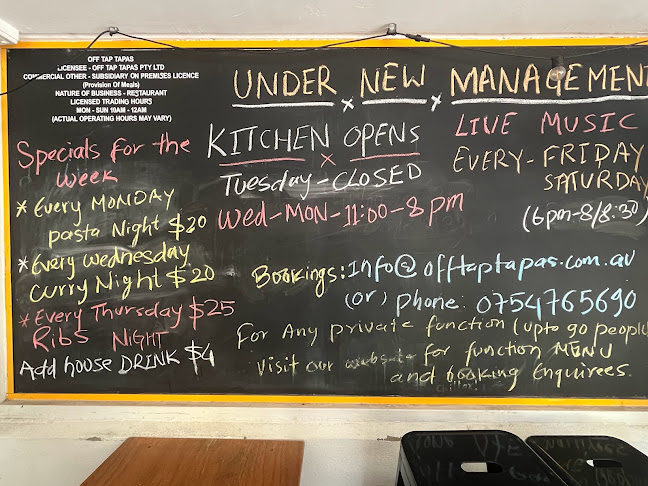 OFF TAP TAPAS
LICENSEE - OFF TAP TAPAS PTY LTD
COMMERCIAL OTHER - SUBSIDIARY ON PREMISES LICENCE
(Provision Of Meals)
NATURE OF BUSINESS - RESTAURANT
LICENSED TRADING HOURS
MON - SUN 10AM - 12AM
(ACTUAL OPERATING HOURS MAY VARY)
Specials for the
week
* Every MONDAY
pasta Night $20
* Every Wednesday
Curry Night $20
* Every Thursday $25
Ribs NIGHT
Add house DRINK $4
UNDER x NEW x MANAGEMENT
KITCHEN x OPENS
Tuesday - CLOSED
Wed-MON-11:00-8pm
LIVE MUSIC
EVERY-FRIDAY
SATURDAY
(6pm-8/8:30)
Bookings: Info@offtaptapas.com.au
(or) phone: 0754765690
For Any private function (upto 90 people
Visit our website for function MENU
and booking Enquirees.